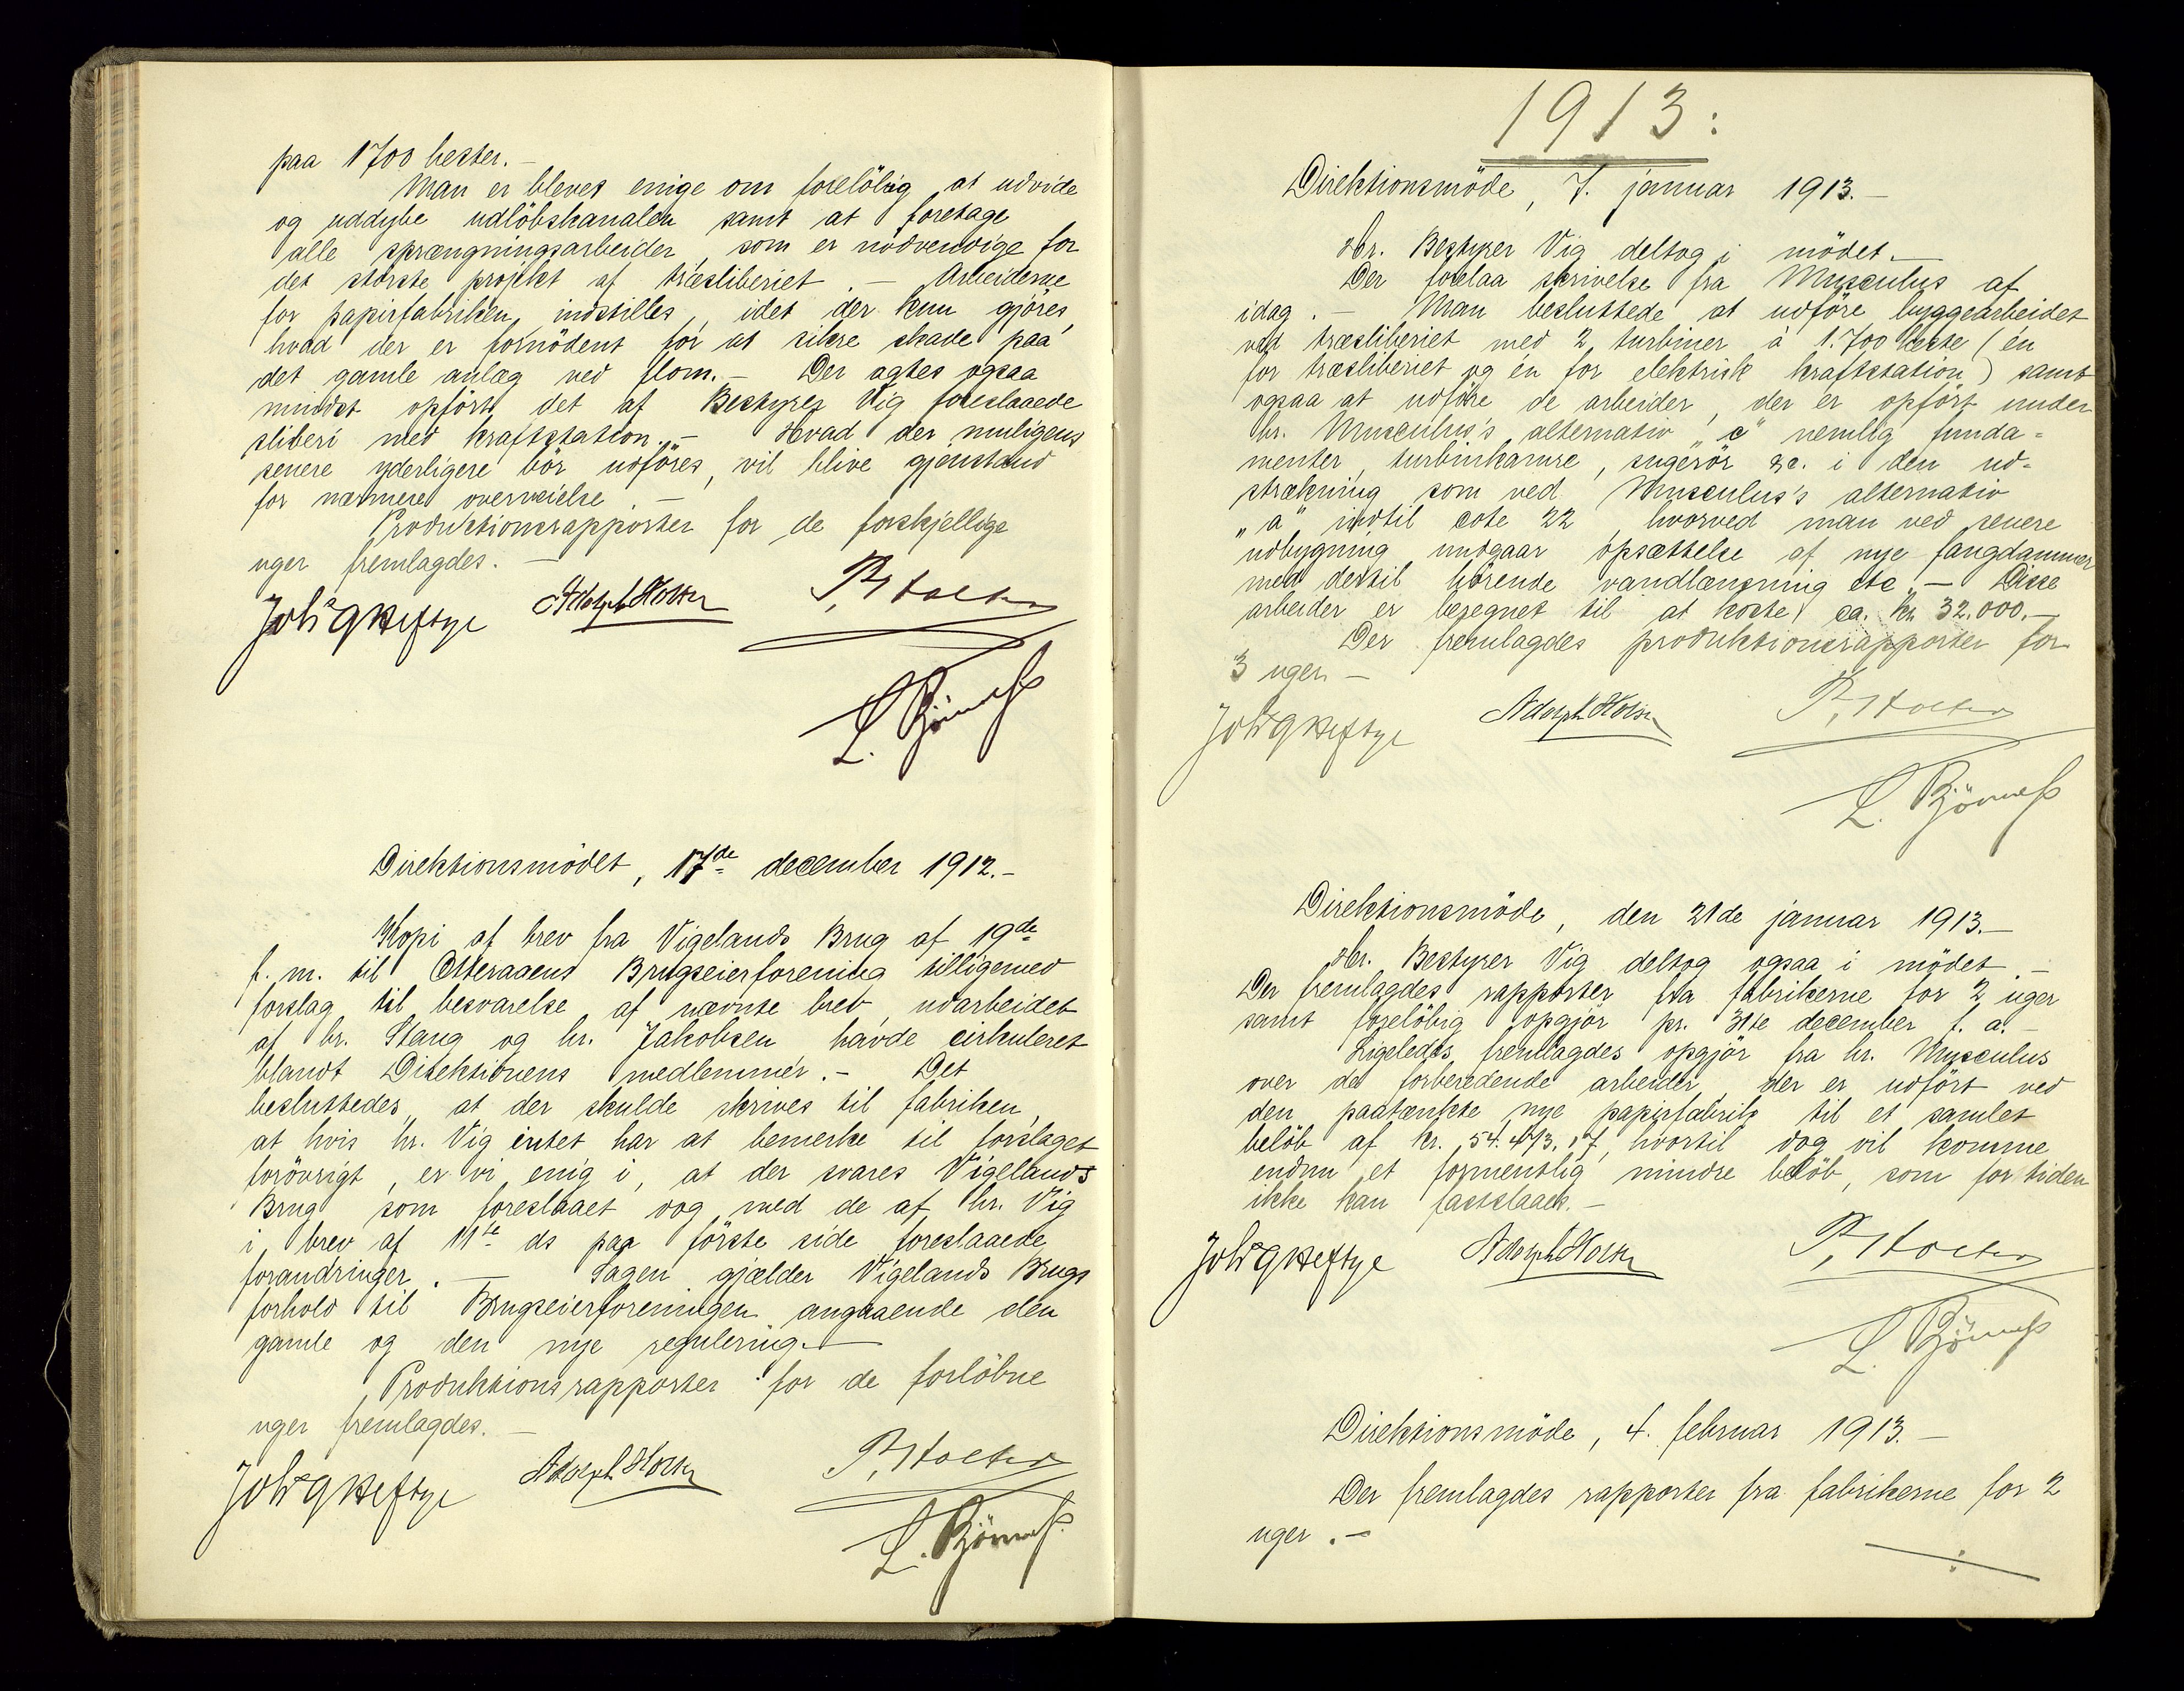 paa 1700 hester.–
Man er blevet enige om foreløbig at udvide
og uddybe udlöbskanalen samt at foretage
alle sprængningsarbeider, som er nödvendige for
det störste projekt af træsliberiet.– Arbeiderne
for papirfabriken indstilles, idet der kun gjöres,
hvad der er fornödent for at sikre skade paa
det gamle anlæg ved flom.– Der agtes ogsaa
mindst opfört det af Bestyrer Vig foreslaaede
sliberi med kraftstation.– Hvad der muligens
senere yderligere bör udföres, vil blive gjenstand
for nærmere overveielse.–
Produktionsrapporter for de forskjellige
uger fremlagdes.–
Joh G Heftye Adolph Holter P. Holter
L. Björness
Direktionsmödet, 17de december 1912.–
Kopi af brev fra Vigelands Brug af 19de
f. m. til Otteraaens Brugseierforening tilligemed
forslag til besvarelse af nævnte brev, udarbeidet
af hr. Stang og hr. Jakobsen havde cirkuleret
blandt Direktionens medlemmer.– Det
besluttedes, at der skulde skrives til fabriken,
at hvis hr. Vig intet har at bemerke til forslaget
forövrigt, er vi enig i, at der svares Vigelands
Brug som foreslaaet dog med de af hr. Vig
i brev af 11te ds paa förste side foreslaaede
forandringer.– Sagen gjælder Vigelands Brugs
forhold til Brugseierforeningen angaaende den
gamle og den nye regulering.–
Produktionsrapporter for de forlöbne
uger fremlagdes.–
Joh G Heftye Adolph Holter P. Holter
L. Björness
1913:
Direktionsmöde, 7. januar 1913.–
Hr. Bestyrer Vig deltog i mödet.–
Der forelaa skrivelse fra Musculus af
idag.– Man besluttede at udföre byggearbeidet
ved træsliberiet med 2 turbiner à 1.700 heste (én
for træsliberiet og én for elektrisk kraftstation) samt
ogsaa at udföre de arbeider, der er opfört under
hr. Musculus's alternativ "c" nemlig funda=
menter, turbinkamre, sugerör &c. i den ud=
strækning som ved Musculus's alternativ
"a" indtil cote 22, hvorved man ved senere
udbygning undgaar opsættelse af nye fangdammer
med dertil hörende vandlænsning etc.– Disse
arbeider er beregnet til at koste ca. kr. 32.000.–
Der fremlagdes produktionsrapporter for
3 uger.–
Joh G Heftye Adolph Holter P. Holter
L. Björness
Direktionsmöde, den 21de januar 1913.–
Hr. Bestyrer Vig deltog ogsaa i mödet.–
Der fremlagdes rapporter fra fabrikerne for 2 uger
samt foreløbig opgjör pr. 31te december f. a.–
Ligeledes fremlagdes opgjör fra hr. Musculus
over de forberedende arbeider, der er udfört ved
den paatænkte nye papirfabrik til et samlet
belöb af kr. 54.413.17, hvortil dog vil komme
endnu et formentlig mindre belöb, som for tiden
ikke kan fastslaaes.–
Joh G Heftye Adolph Holter P. Holter
L. Björness
Direktionsmöde, 4. februar 1913.–
Der fremlagdes rapporter fra fabrikerne for 2
uger.–